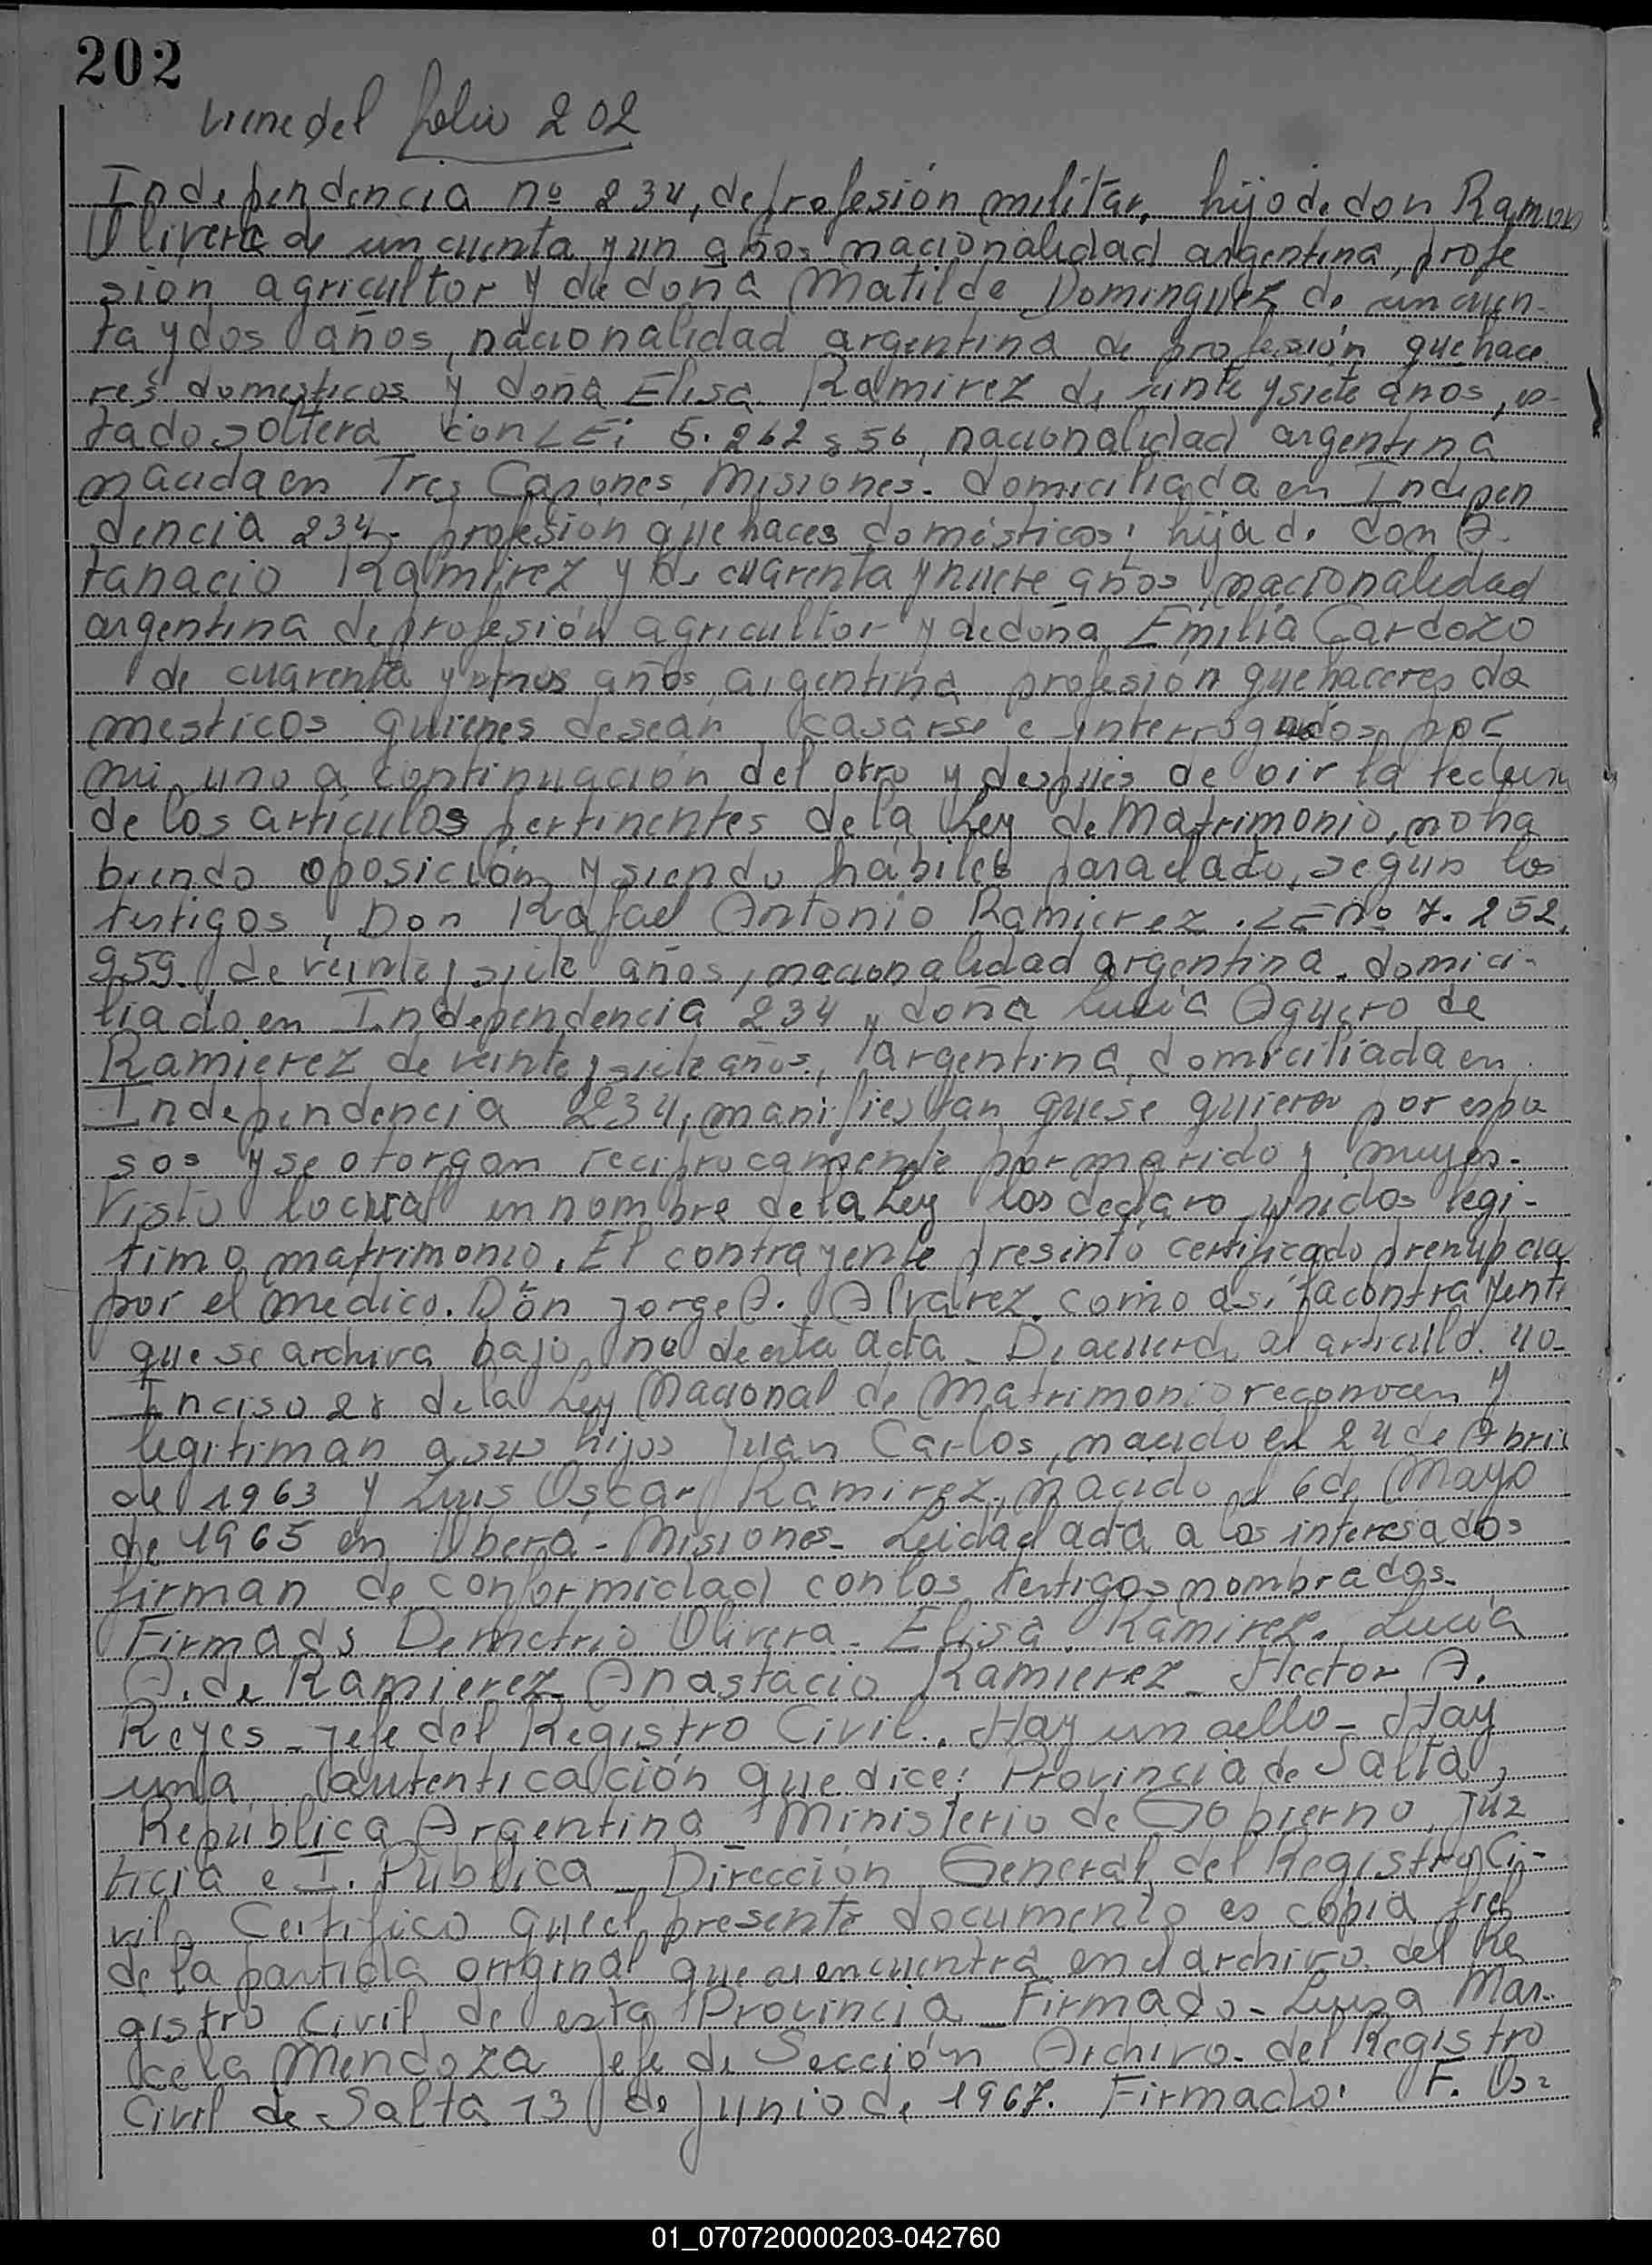 202
viene del folio 202
Independencia nº 234, de profesión militar, hijo de don Ramon
Olivera de cincuenta y un años nacionalidad argentina, profe
sión agricultor y de doña Matilde Dominguez de cincuen-
ta y dos años, nacionalidad argentina de profesión quehace
res domesticos y doña Elisa Ramirez de veinte y siete años, es-
tado soltera con LE: 5.262 556, nacionalidad argentina
nacida en Tres Capones Misiones. domiciliada en Indepen
dencia 234. profesión quehaces domésticos; hija de don A-
tanacio Ramirez y de cuarenta y nueve años, nacionalidad
argentina de profesión agricultor y de doña Emilia Cardozo
de cuarenta y años, argentina profesión quehaceres do
mesticos quienes desean casarse e interrogados por
mi uno a continuación del otro y después de oir la lectura
de los artículos pertinentes de la Ley de Matrimonio, no ha
biendo oposición y siendo hábiles para el acto, según los
testigos, Don Rafael Antonio Ramierez. LE nº 7.252.
959. de veinte y siete años, nacionalidad argentina. domici-
liado en Independencia 234 y doña Lucia Aguero de
Ramierez de veinte y siete años, argentina, domiciliada en
Independencia 234, manifiestan que se quieren por espo
sos y se otorgan reciprocamente por marido y mujer.
Visto lo cual en nombre de la Ley los declaro unidos legi-
timo matrimonio. El contrayente presentó certificado prenupcial
por el médico. Dón Jorge A. Alvarez como así la contrayente
que se archiva bajo no de esta acta. De acuerdo al articulo 40-
Inciso 28 de la Ley Nacional de Matrimonio reconocen y
legitiman a sus hijos Juan Carlos, nacido el 24 de Abril
de 1963 y Luis Oscar Ramirez, nacido el 6 de Mayo
de 1965 en Oberá - Misiones - Leida el acta a los interesados
firman de conformidad con los testigos nombrados.
Firmads Demetrio Olivera - Elisa Ramirez. Lucia
A. de Ramierez - Anastacio Ramierez - Hector A.
Reyes - Jefe del Registro Civil. Hay un sello - Hay
una autenticación que dice: Provincia de Salta,
República Argentina - Ministerio de Gobierno, Juz
ticia e I. Publica - Dirección General del Registro Ci-
vil, Certifico que el presente documento es copia fiel
de la partida original que se encuentra en el archivo del Re
gistro Civil de esta Provincia - Firmado - Luisa Mar-
cela Mendoza Jefe de Sección Archivo - del Registro
Civil de Salta 13 de Junio de 1967. Firmado: F.
01_070720000203-042760